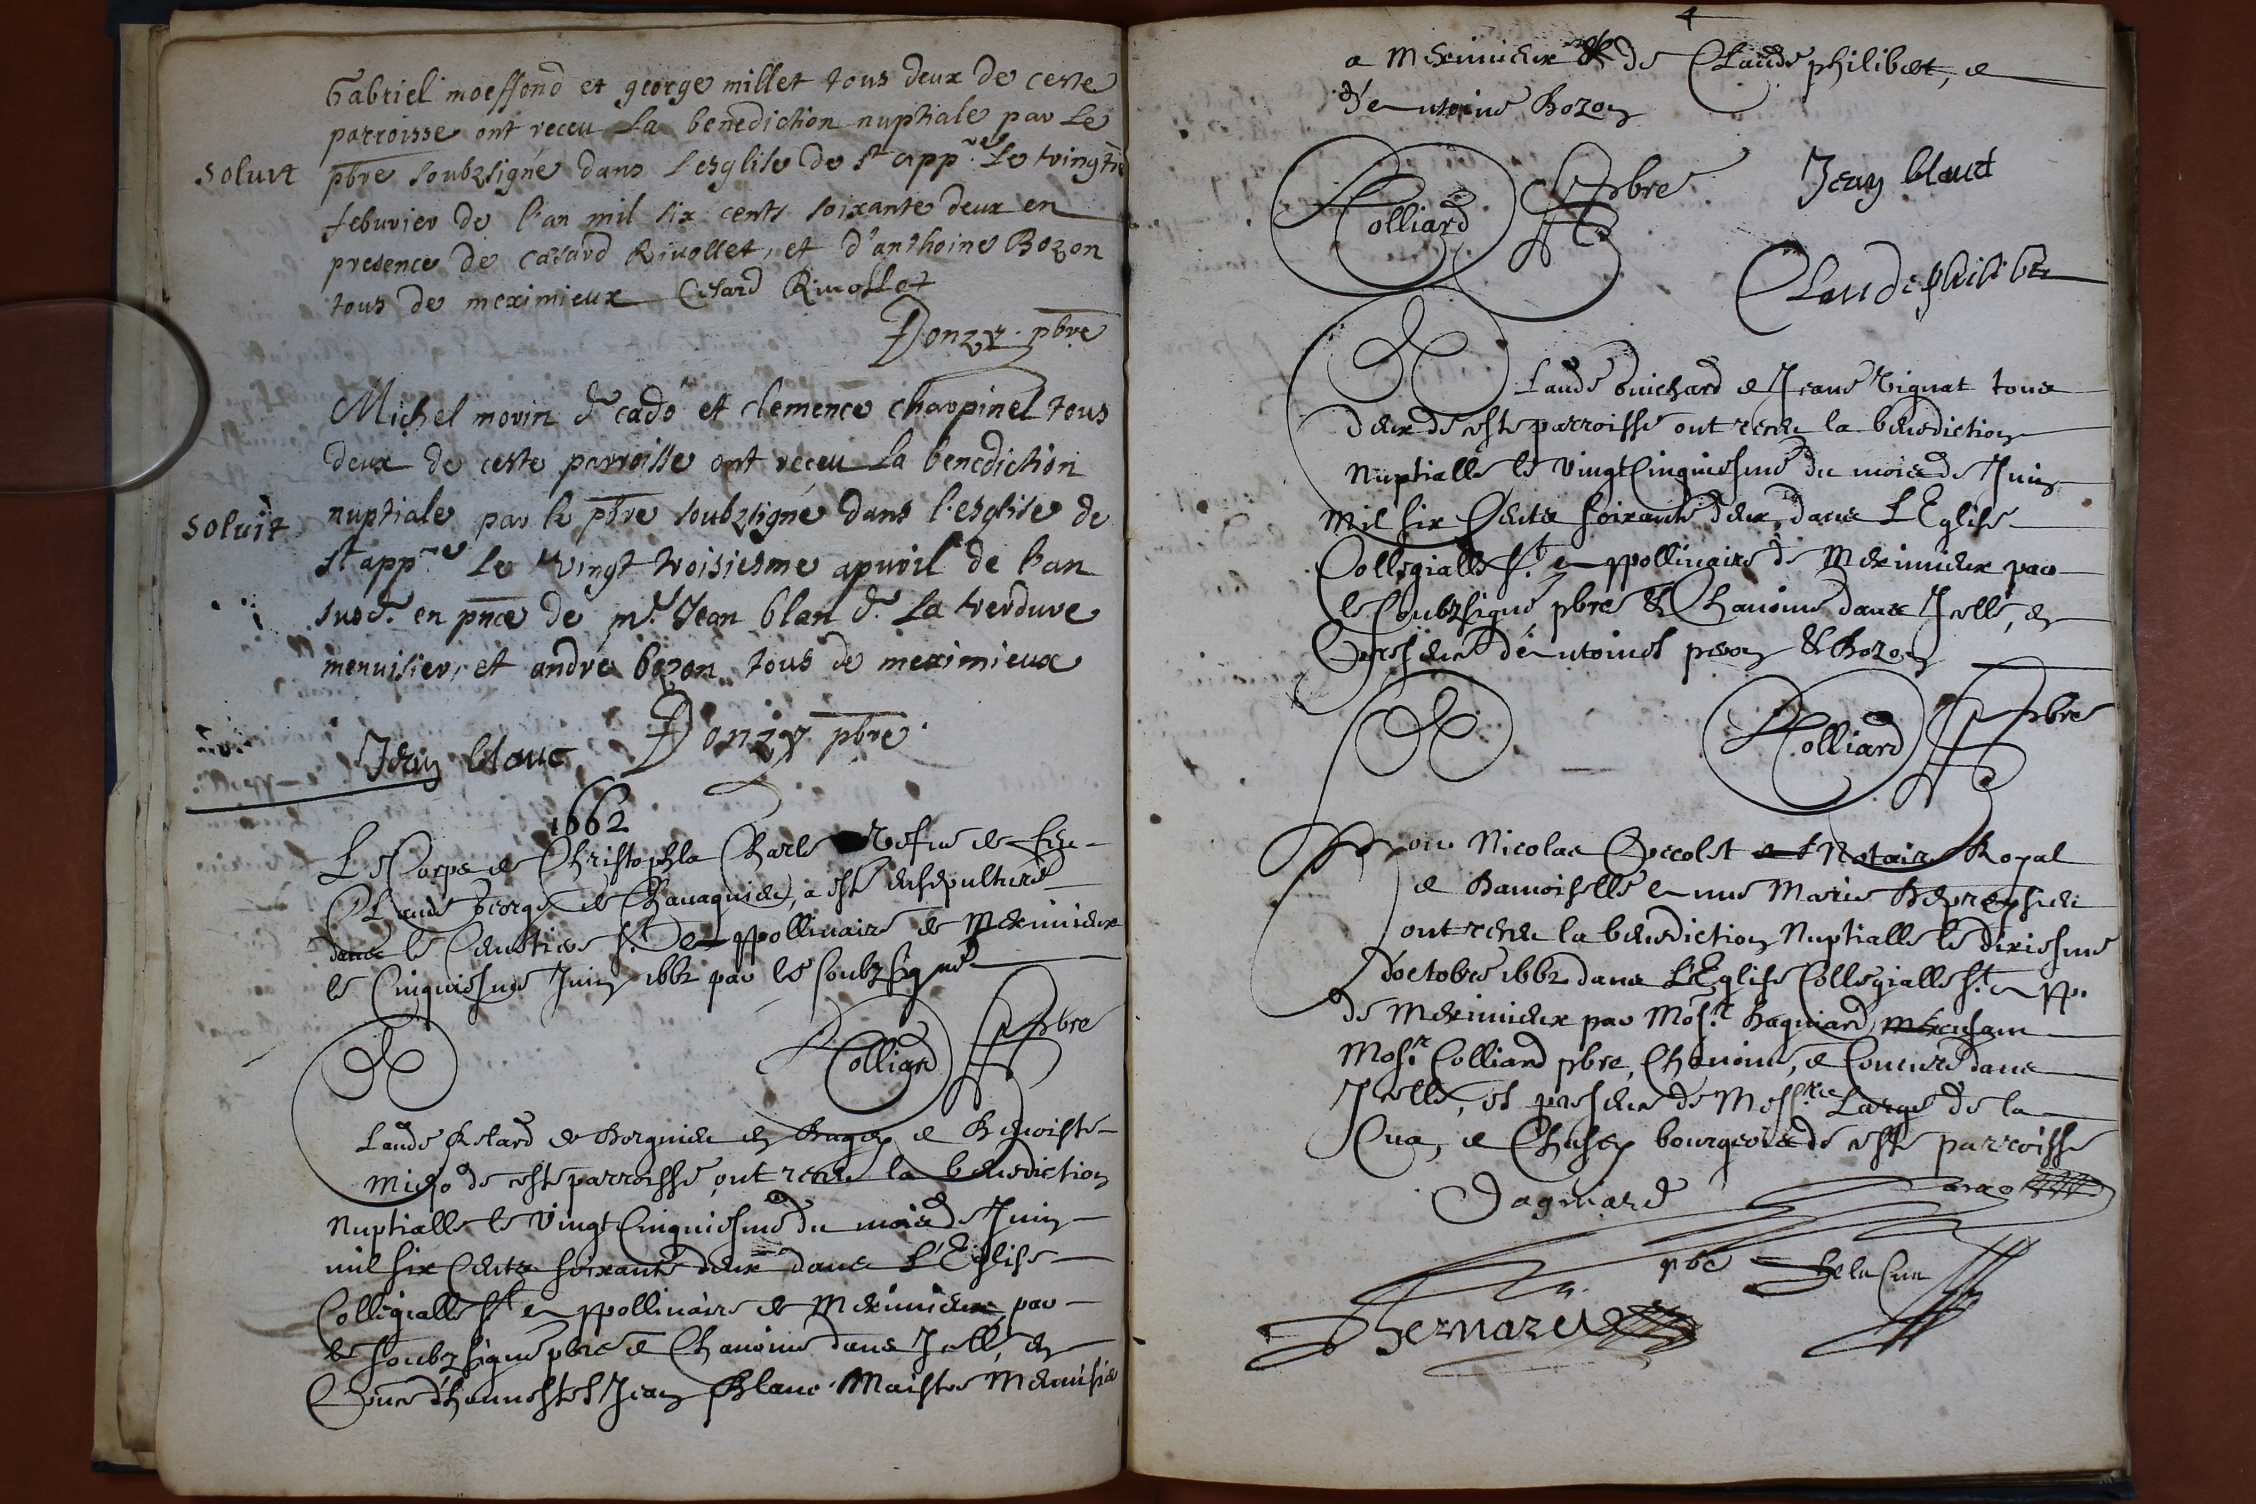 Gabriel moeffond et george millet tous deux de ceste
parroisse ont receu La benediction nuptiale par Le
soluit pbre soubzsigné dans l'esglise de st appre Le vingt
febvrier de l'an mil six cents soixante deux en
presence de Casard Rivollet, et d'anthoine Bozon
tous de meximieux Cesard Rivollet
Donzy pbre
Michel morin d. cado et clemence charpinel tous
deux de ceste parroisse ont receu La benediction
soluit nuptiale par le pbre soubzsigné dans l'esglise de
st appre Le vingt troisiesme apuril de l'an
susd. en pnce de mr. Jean blan d. La verdure
menuisier, et andré bozon tous de meximieux
Donzy pbre
Jean blanc
1662
Le Corps de Christophla Charle Vefue de feu
Claude George de Chavagnieu, a esté ensepulturé
dans le Cimetiere st Appollinaire de Meximieux
le Cinquiesme Juin 1662 par le soubzsigné
Colliard pbre
Claude Retard de Borgnieu en Bugey e Benoiste
Migo de ceste parroisse ont receu la benediction
Nuptialle le Vingt Cinquiesme du mois de Juin
mil six Cents soixante deux dans L'Eglise
Collegialle st Appollinaire de Meximieux par
le soubzsigné pbre e Chanoine dans Icelle, en
Pnce d'honnestes Jean Blanc Maistre Menuisier
4
a Meximieux & de Claude philibert, e
d'Antoine Bozon
Colliard pbre Jean blanc
Claude philiber
Claude Guichard e Jeane Vignat tous
deux de ceste parroisse ont receu la benediction
Nuptialle le Vingt Cinquiesme du mois de Juin
Mil six Cents soixante deux, dans L'Eglise
Collegialle st Appollinaire de Meximieux par
le soubzsigné pbre & Chanoine dans Icelle, en
Presence d'Antoines & Bozon
Colliard pbre
Nicolas Notaire Royal
e Damoiselle Anne Marie
ont receu la benediction Nuptialle le dixiesme
d'octobre 1662 dans L'Eglise Collegialle st App.
de Meximieux par Mosr. Dagniard
Mosr Colliard pbre, Chanoine, e Concuré dans
Icelle, et presence de Messre Large de la
Cua, e Chasey bourgeois de ceste parroisse
Dagniard
pbe De la Cua
Bernard